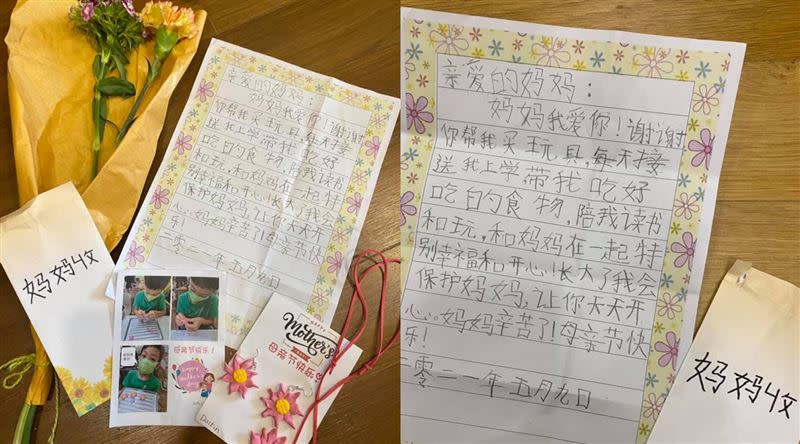 亲爱的妈妈：
妈妈我爱你！谢谢
你帮我买玩具，每天接
送我上学带我吃好
吃的食物，陪我读书
和玩，和妈妈在一起特
别幸福和开心！长大了我会
保护妈妈，让你天天开
心。妈妈辛苦了！母亲节快
乐！
二零二一年五月九日
妈妈收
母亲节快乐！
HAPPY
Mother's
母亲节快乐
亲爱的妈妈：
妈妈我爱你！谢谢
你帮我买玩具，每天接
送我上学带我吃好
吃的食物，陪我读书
和玩，和妈妈在一起特
别幸福和开心！长大了我会
保护妈妈，让你天天开
心。妈妈辛苦了！母亲节快
乐！
二零二一年五月九日
妈妈收